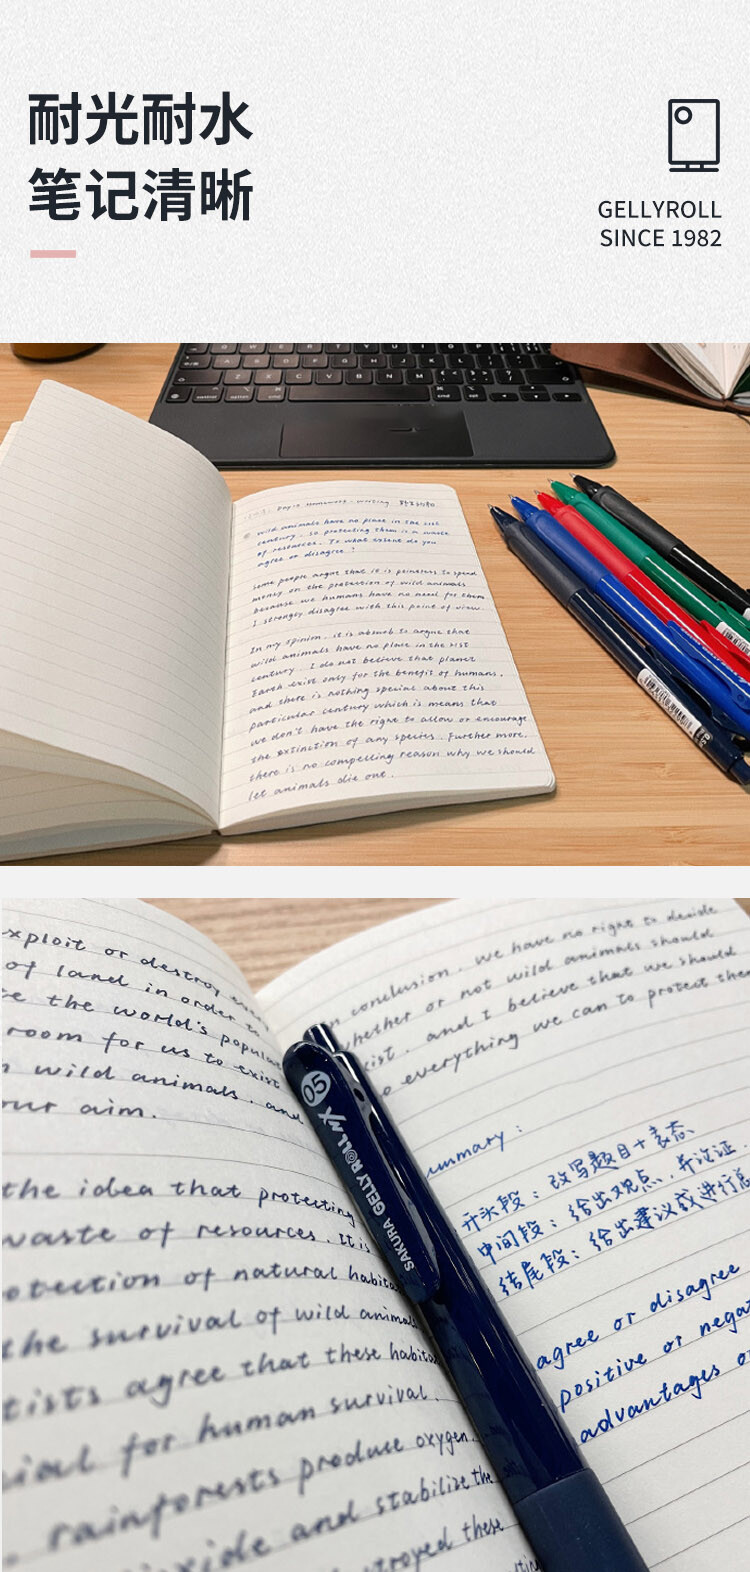 耐光耐水
笔记清晰
GELLYROLL
SINCE 1982
Topic Homework - writing
wild animals have no place in the 21st
century. So protecting them is a waste
of resources. To what extent do you
agree or disagree?
Some people argue that it is pointless to spend
money on the protection of wild animals
because we humans have no need for them
I strongly disagree with this point of view.
In my opinion, it is absurb to argue that
wild animals have no place in the 21st
century. I do not believe that planet
Earth exist only for the benefit of humans.
and there is nothing special about this
particular century which is means that
we don't have the right to allow or encourage
the extinction of any species. Further more,
there is no compelling reason why we should
let animals die out.
xploit or destroy every
of land in order to
the world's popula
room for us to exist
wild animals, and
our aim.
the idea that protecting
waste of resources. It is
otection of natural habita
the survival of wild animals
tists agree that these habita
ial for human survival.
rainforests produce oxygen,
oxide and stabilize the
stroyed these
n conclusion, we have no right to decide
whether or not wild animals should
xist. and I believe that we should
o everything we can to protect them
ummary:
开头段：改写题目+表态
中间段：给出观点，并论证.
结尾段：给出建议或进行总
agree or disagree
positive or negat
advantages o
05
SAKURA GELLY ROLL NX